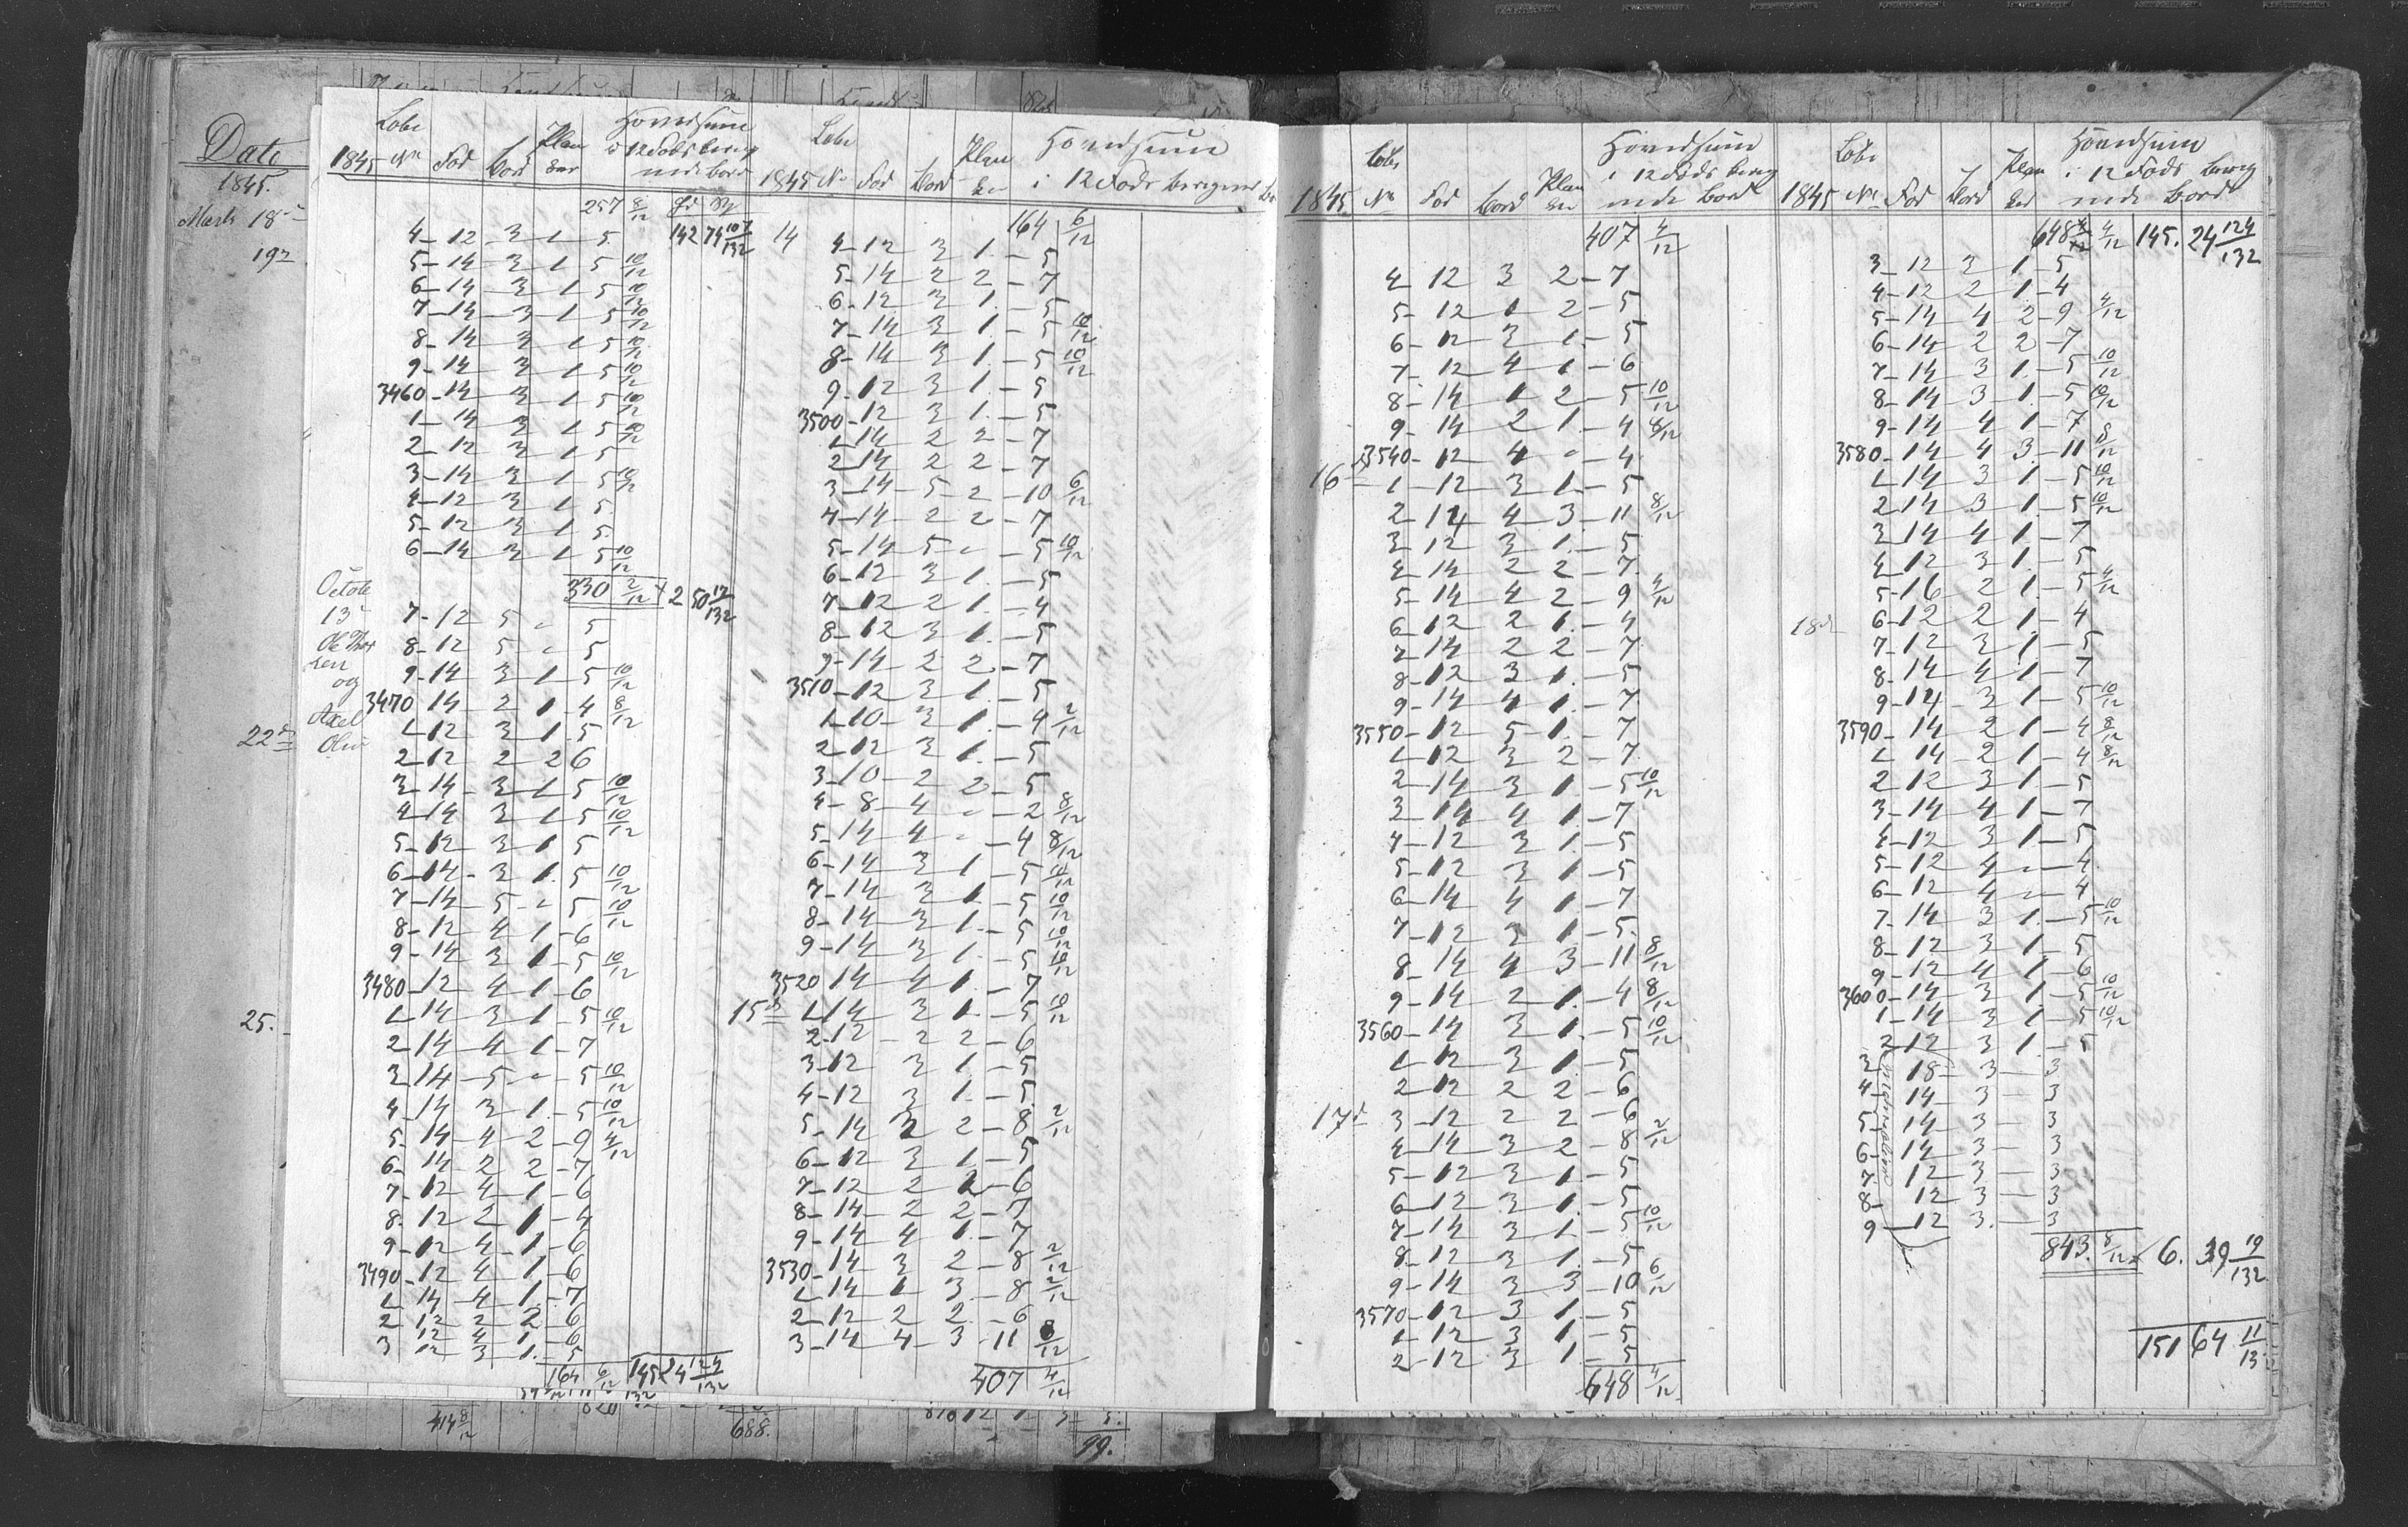 Date
1845.
Marts 18
19
22
25.
1845 Løbe No Fod Bord Plan ker Hovedsum i 12 Fods beregnede bord
257 8/12
4 - 12 - 3 - 1 - 5 142 74 107/132
5 - 14 - 3 - 1 5 10/12
6 - 14 - 3 - 1 5 10/12
7 - 14 - 3 - 1 5 10/12
8 - 14 3 1 5 10/12
9 - 14 3 1 5 10/12
3460 - 14 3 1 5 10/12
1 - 14 3 1 5 10/12
2 - 12 3 1 5
3 - 14 3 1 5 10/12
4 - 12 3 1 5
5 - 12 3 1 5
6 - 14 3 1 5 10/12
330 2/12 2 50 17/132
Octobr
13 7 - 12 5 " 5
Ole Thor 8 - 12 5 " 5
sen 9 - 14 3 1 5 10/12
og
3470 14 2 1 4 8/12
Axel 1 - 12 3 1 5
Olsen 2 - 12 2 2 6
3 - 14 - 3 1 5 10/12
4 - 14 3 1 5 10/12
5 - 12 3 1 5
6 - 14 - 3 1 5 10/12
7 - 14 5 " 5 10/12
8 - 12 4 1 - 6
9 - 14 3 1 - 5 10/12
3480 - 12 4 1 - 6
1 - 14 3 1 - 5 10/12
2 - 14 4 1 - 7
3 - 14 - 5 " - 5 10/12
4 - 14 3 1 - 5 10/12
5 - 14 - 4 - 2 - 9 4/12
6 - 14 2 2 - 7
7 - 12 4 1 - 6
8 - 12 2 1 - 4
9 - 12 4 1 - 6
3490 - 12 4 1 - 6
1 14 4 1 - 7
2 12 2 2 - 6
3 12 4 1 - 6
12 3 1 - 5
164 6/12 145 24 124/132
1845 Løbe No Fod Bord Plan ker Hovedsum i 12 Fods beregnede
164 6/12
14 4 - 12 3 1 - 5
5 - 14 2 2 - 7
6 - 12 3 1 - 5
7 - 14 3 1 - 5 10/12
8 - 14 3 1 - 5 10/12
9 - 12 3 1 - 5
3500 - 12 3 1 - 5
1 - 14 2 2 - 7
2 - 14 2 2 - 7
3 - 14 - 5 - 2 - 10 6/12
4 - 14 - 2 2 - 7
5 - 14 5 " - 5 10/12
6 - 12 3 1 - 5
7 - 12 2 1 - 4
8 - 12 3 1 - 5
9 - 14 2 2 - 7
3510 - 12 3 1 - 5
1 - 10 - 3 1 - 4 2/12
2 - 12 3 1 - 5
3 - 10 - 2 2 - 5
4 - 8 - 4 " - 2 8/12
5 - 14 4 " - 4 8/12
6 - 14 3 1 - 5 10/12
7 - 14 3 1 - 5 10/12
8 - 14 3 1 - 5 10/12
9 - 14 3 1 - 5 10/12
3520 14 4 1 - 7
15 1 - 14 3 1 - 5 10/12
2 - 12 - 2 2 - 6
3 - 12 3 1 - 5
4 - 12 3 1 - 5
5 - 14 3 2 - 8 2/12
6 - 12 3 1 - 5
7 - 12 2 2 - 6
8 - 14 2 2 - 7
9 - 14 4 1 - 7
3530 - 14 3 2 - 8 2/12
1 - 14 1 3 - 8 2/12
2 - 12 2 2 - 6
3 - 14 4 - 3 - 11 8/12
407 4/12
414 8/12
820
688.
810 12 1 3 5.
99.
1845 Løbe No Fod Bord Plan ker Hovedsum i 12 Fods bereg nede bord
407 4/12
4 12 3 2 - 7
5 - 12 1 2 - 5
6 - 12 3 1 - 5
7 - 12 4 1 - 6
8 - 14 1 2 - 5 10/12
9 - 14 2 1 - 4 8/12
3540 - 12 4 " - 4
16 1 - 12 3 1 - 5
2 - 14 4 3 - 11 8/12
3 12 3 1 - 5
4 - 14 2 2 - 7
5 - 14 4 2 - 9 4/12
6 - 12 2 1 - 4
7 - 14 2 2 - 7
8 - 12 3 1 - 5
9 - 14 4 1 - 7
3550 - 12 5 1 - 7
1 - 12 3 2 - 7
2 - 14 3 1 - 5 10/12
3 - 14 4 1 - 7
4 - 12 3 1 - 5
5 - 12 3 1 - 5
6 - 14 4 1 - 7
7 - 12 3 1 - 5
8 - 14 4 3 - 11 8/12
9 - 14 2 1 - 4 8/12
3560 - 14 3 1 - 5 10/12
1 - 12 3 1 - 5
2 - 12 2 2 - 6
17 3 - 12 2 2 - 6
4 - 14 3 2 - 8 2/12
5 - 12 3 1 - 5
6 - 12 3 1 - 5
7 - 14 3 1 - 5 10/12
8 - 12 3 1 - 5
9 - 14 3 3 - 10 6/12
3570 - 12 3 1 - 5
1 - 12 3 1 - 5
2 - 12 3 1 - 5
648 4/12
1845 Løbe No Fod Bord Plan ker Hovedsum i 12 Fods bereg nede Bord
648 4/12 145. 24 124/132
3 - 12 3 1 - 5
4 - 12 2 1 - 4
5 - 14 4 2 - 9 4/12
6 - 14 2 2 - 7
7 - 14 3 1 - 5 10/12
8 - 14 3 1 - 5 10/12
9 - 14 4 1 - 7
3580 - 14 4 3 - 11 8/12
1 14 3 1 - 5 10/12
2 14 3 1 - 5 10/12
3 14 4 1 - 7
4 - 12 3 1 - 5
5 - 16 2 1 - 5 4/12
18 6 - 12 2 1 - 4
7 - 12 3 1 - 5
8 - 14 4 1 - 7
9 - 14 3 1 - 5 10/12
3590 - 14 2 1 - 4 8/12
1 14 2 1 - 4 8/12
2 12 3 1 - 5
3 - 14 4 1 - 7
4 - 12 3 1 - 5
5 - 12 4 " - 4
6 - 12 4 " - 4
7 - 14 3 1 - 5 10/12
8 - 12 3 1 - 5
9 - 12 4 1 - 6
3600 - 14 3 1 - 5 10/12
1 - 14 3 1 - 5 10/12
2 - 12 3 1 - 5
3 18 - 3 - 3
4 - 14 - 3 - 3
5 - 14 3 - 3
6 - 14 3 - 3
7 12 3 - 3
8 - 12 3 - 3
9 12 3 - 3
843. 8/12 6. 39 19/132
151 64 11/13